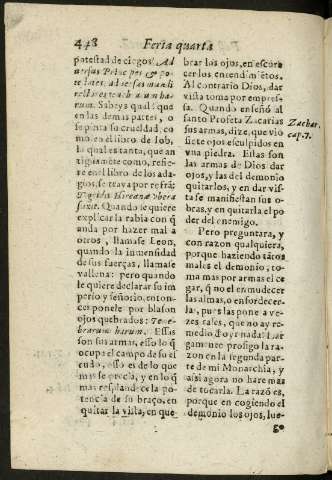 448 Feria quarta
potestad de ciegos! Ad
uersus Principes & po-
testates, aduersus mundi
rectores tenebrarum ha-
rum. Sabeys qual? que
en las demas partes, o
se pinta su crueldad, co
mo en el libro de Iob,
la qual es tanta, que an
tiguamẽte como, refie-
re en el libro de los ada-
gios, se traya por refrã:
Quando se quiere
explicar la rabia con q̃
anda por hazer mal a
otros, llamase Leon,
quando la inmensidad
de sus fuerças, llamase
vallena: pero quando
le quiere declarar su im
perio y señorio, enton-
ces ponele por blason
ojos quebrados: Tene-
brarum harum. Essas
son sus armas, esso lo q̃
ocupa el campo de su es
cudo, esso es de lo que
mas se precia, y en lo q̃
mas resplandece la po-
tencia de su braço, en
quitar la vista, en que
brar los ojos, en escure
cer los entendimiẽtos.
Al contrario Dios, dar
vista toma por empres-
sa. Quando enseñó al
santo Profeta Zacarias
sus armas, dize, que vio
siete ojos esculpidos en
vna piedra. Ellas son
las armas de Dios dar
ojos, y las del demonio
quitarlos, y en dar vis-
ta se manifiestan sus o-
bras, y en quitarla el po
der del enemigo.
Pero preguntara, y
con razon qualquiera,
porque haziendo tãtos
males el demonio, to-
ma mas por armas el ce
gar, q̃ no el enmudecer
las almas, o ensordecer-
las, pues las pone a ve-
zes tales, que no ay re-
medio
gamente prosigo la ra-
zon en la segunda parte
de mi Monarchia; y
assi agora no hare mas
de tocarla. La razõ es,
porque en cogiendo el
demonio los ojos, lue-
go
Zachar.
cap. 3.